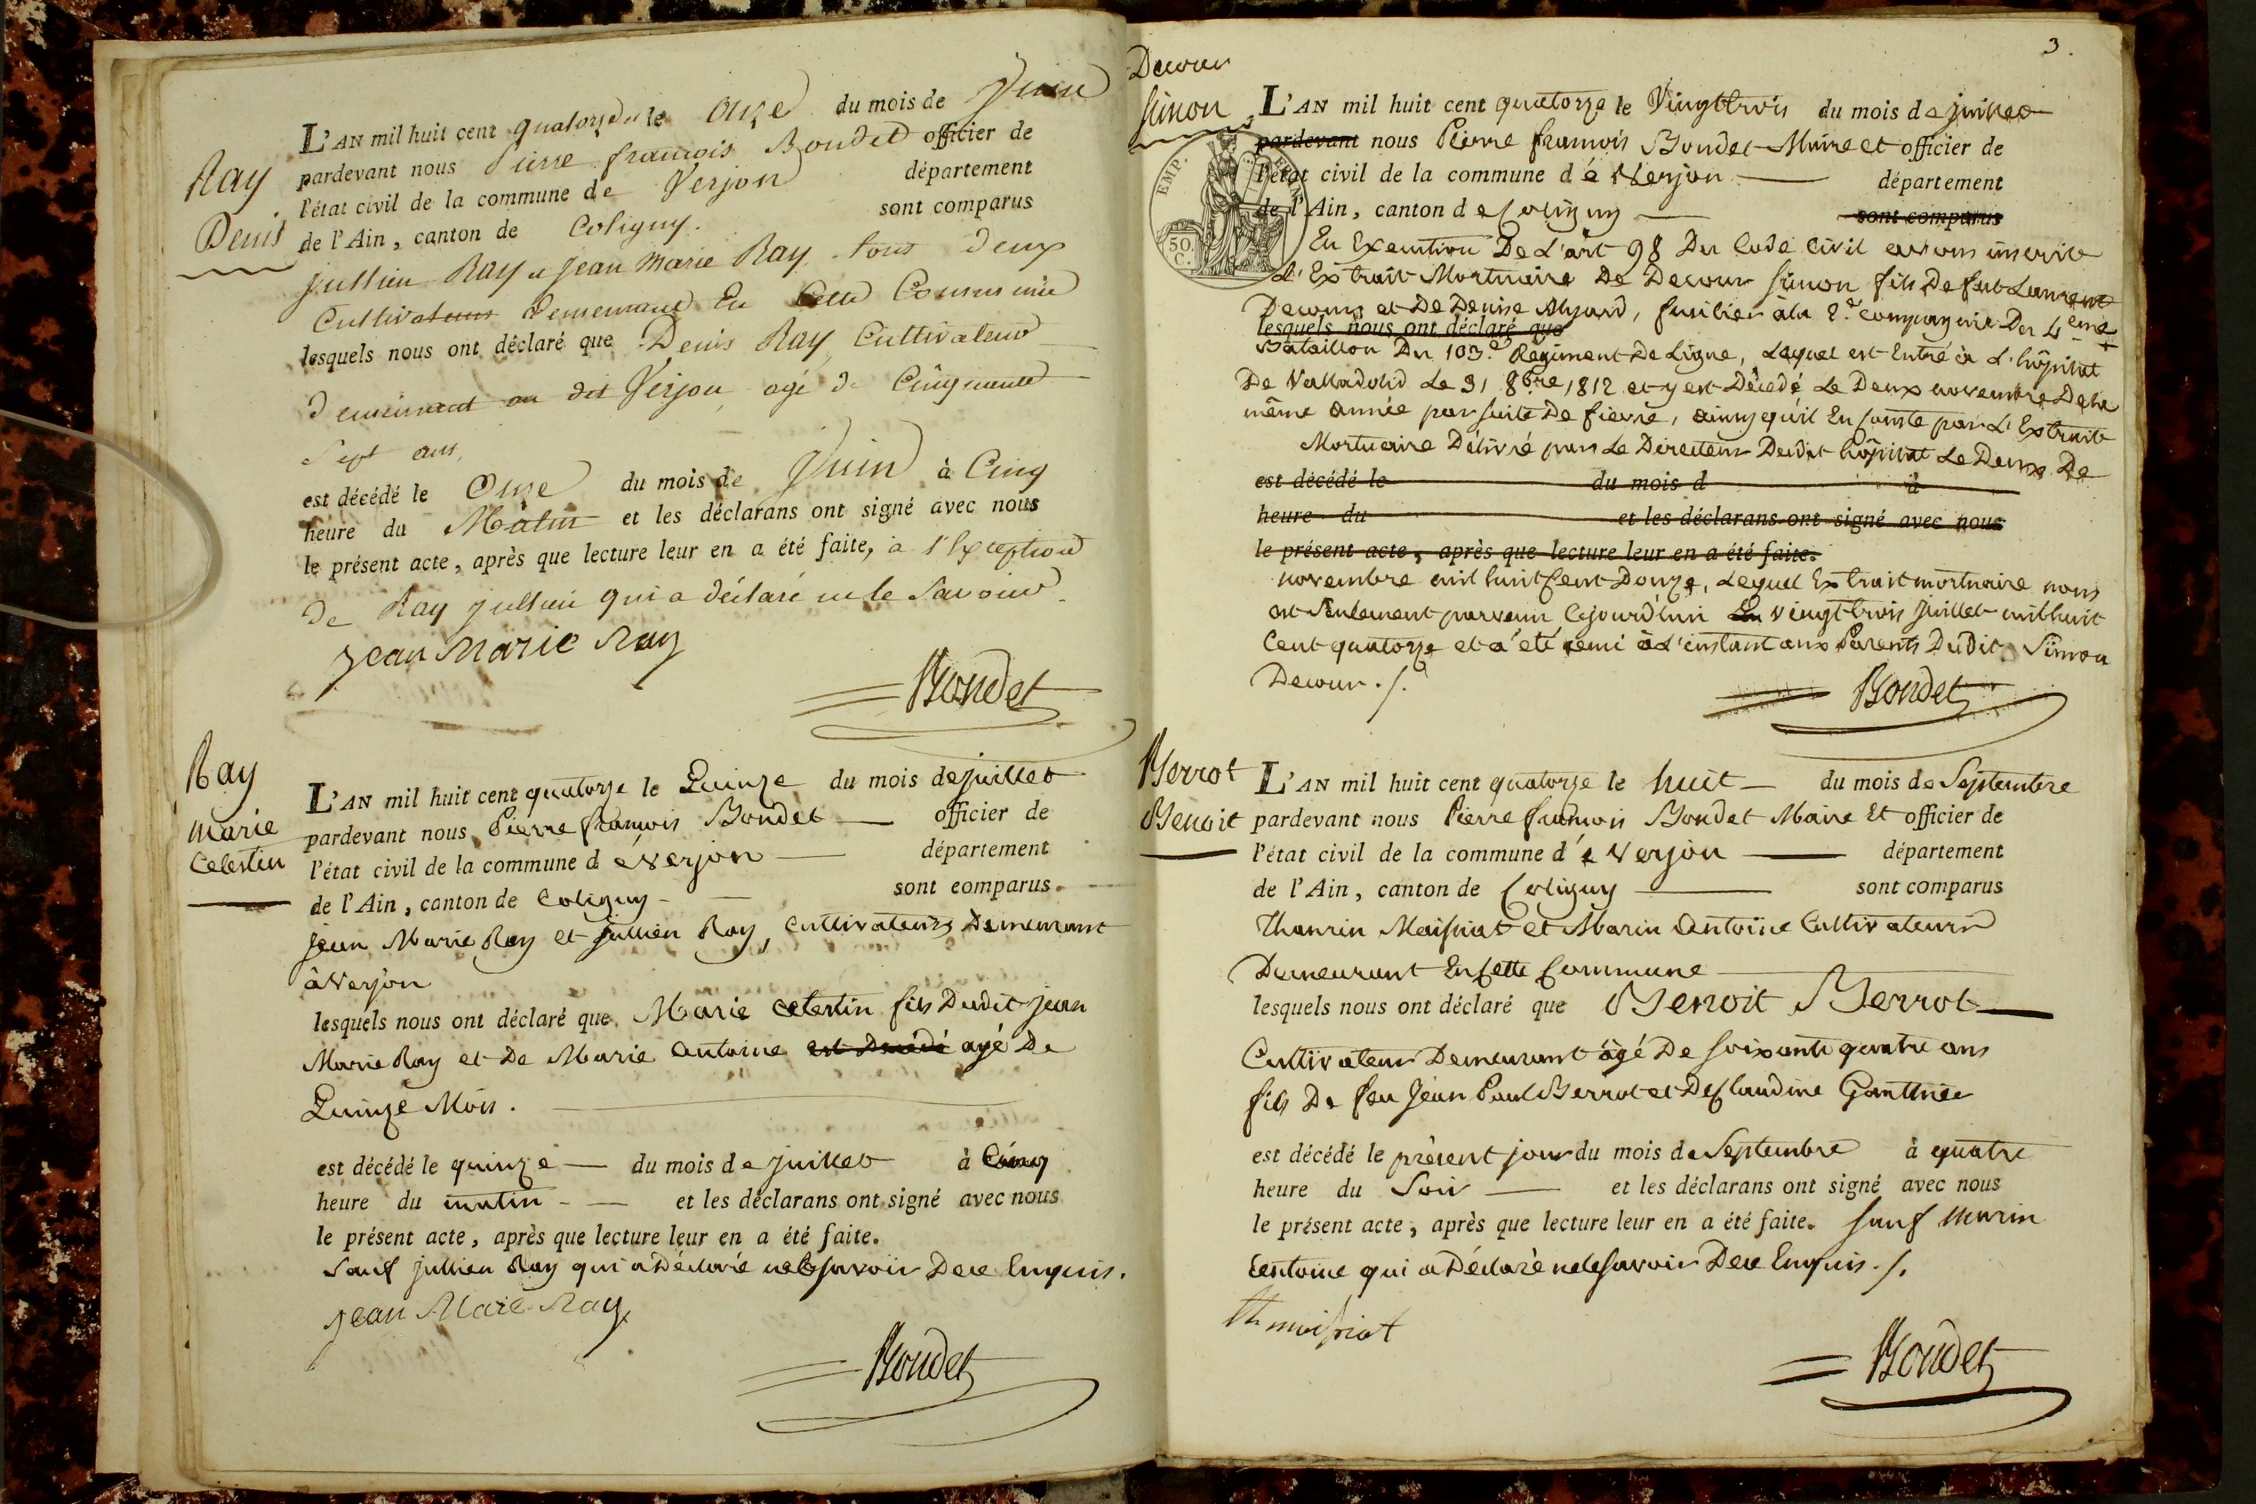 Ray
Denis
L'AN mil huit cent quatorze le Onze du mois de Juin
pardevant nous Pierre françois Bondet officier de
l'état civil de la commune de Verjon département
de l'Ain, canton de Coligny. sont comparus
Jullien Ray et Jean Marie Ray tous deux
Cultivateurs demeurant En Cette Commune
lesquels nous ont déclaré que Denis Ray Cultivateur
demeurant au dit Verjon agé de Cinquante
Sept ans
est décédé le Onze du mois de Juin à Cinq
heure du Matin et les déclarans ont signé avec nous
le présent acte, après que lecture leur en a été faite, a l'Exception
de Ray jullien qui a déclaré ne le Savoir.
Jean Marie Ray
Bondet
Ray
Marie
Celestin
L'AN mil huit cent quatorze le Quinze du mois de juillet
pardevant nous Pierre françois Bondet officier de
l'état civil de la commune de Verjon département
de l'Ain, canton de Coligny sont comparus.
Jean Marie Ray et Jullien Ray, Cultivateurs Demeurant
à Verjon
lesquels nous ont déclaré que Marie Celestin fils Dudit Jean
Marie Ray et De Marie Antoine est Décédé agé De
Quinze Mois.
est décédé le quinze du mois de Juillet à Cinq
heure du matin et les déclarans ont signé avec nous
le présent acte, après que lecture leur en a été faite.
Sauf Jullien Ray qui a Déclaré ne le Savoir De ce Enquis.
Jean Marie Ray
Bondet
3.
Decour
Simon
EMP.
50.
C.
L'AN mil huit cent quatorze le Vingt trois du mois de juillet
pardevant nous Pierre françois Bondet Maire et officier de
l'état civil de la commune dé Verjon département
de l'Ain, canton de Coligny sont comparus
En Execution De L'art 98 Du Code Civil avons inscrit
L'Extrait Mortuaire De Decour Simon fils De fut Laurent
Decour et De Denise Alyard, fusilier à la 2.e compagnie Du 4eme
lesquels nous ont déclaré que
Bataillon Du 103.e Regiment De Ligne, Lequel est Entré à L'hôpital
De Valladolid Le 31 8bre 1812 et y est Décedé Le Deux novembre De la
même année par suite De fievre, ainsy qu'il En Conste par L'Extrait
Mortuaire Délivré par Le Directeur Dudit hôpital Le Deux De
est décédé le du mois d à
heure du et les déclarans ont signé avec nous
le présent acte, après que lecture leur en a été faite.
novembre mil huit Cent Douze, Lequel Extrait mortuaire nous
est Seulement parvenu Cejourd'hui Le vingt trois Juillet mil huit
Cent quatorze et a été remi à L'instant aux Parents Dudit Simon
Decour ./.
Bondet
Berrot
Benoit
L'AN mil huit cent quatorze le huit du mois de Septembre
pardevant nous Pierre françois Bondet Maire Et officier de
l'état civil de la commune d'e Verjon département
de l'Ain, canton de Coligny sont comparus
Thaurin Maisniat et Marin Antoine Cultivateurs
Demeurant En Cette Commune
lesquels nous ont déclaré que Benoit Berrot
Cultivateur Demeurant âgé De Soixante quatre ans
fils De feu Jean Paul Berrot et De Claudine
est décédé le présent jour du mois de Septembre à quatre
heure du Soir et les déclarans ont signé avec nous
le présent acte, après que lecture leur en a été faite. Sauf Marin
Antoine qui a Déclaré ne le Savoir De ce Enquis ./.
Th maisniat
Bondet